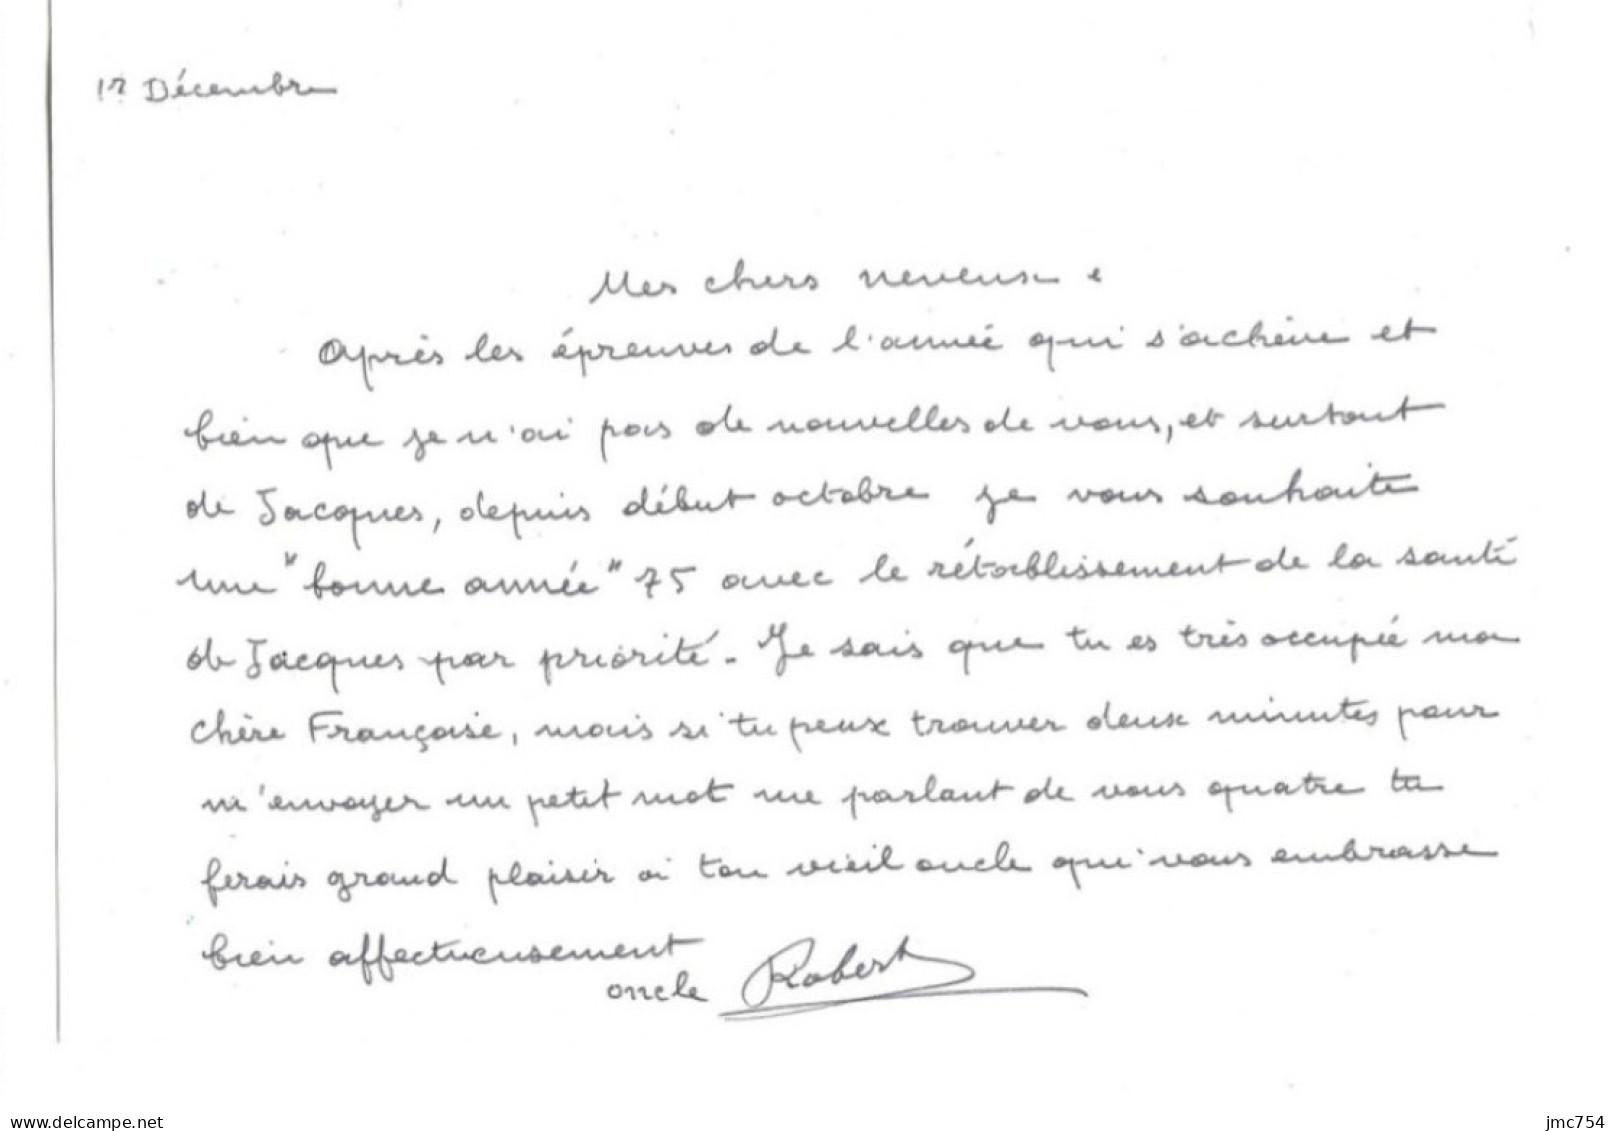 17 Décembre
Mes chers neveux .
Après les épreuves de l'année qui s'achève et
bien que je n'ai pas de nouvelles de vous, et surtout
de Jacques, depuis début octobre je vous souhaite
une "bonne année" 75 avec le rétablissement de la santé
de Jacques par priorité. Je sais que tu es très occupée ma
chère Françoise, mais si tu peux trouver deux minutes pour
m'envoyer un petit mot me parlant de vous quatre tu
ferais grand plaisir à ton vieil oncle qui vous embrasse
bien affectueusement
oncle Robert
www.delcampe.net
jmc754